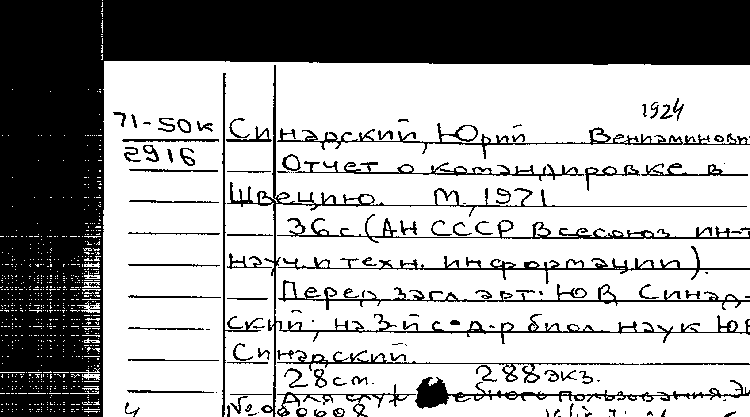 1924
71-50к Синадский, Юрий Вениаминови
2916 Отчет о командировке в
Швецию. М, 1971
36 с. (АН СССР Всесоюз. ин-т
науч. и техн. информации).
Перед загл. авт.: Ю В Синад-
ский; на 3-й с. д-р биол. наук Ю В
Синадский.
28 см. 288 экз.
Для служебного пользования. Эк
4 №000008